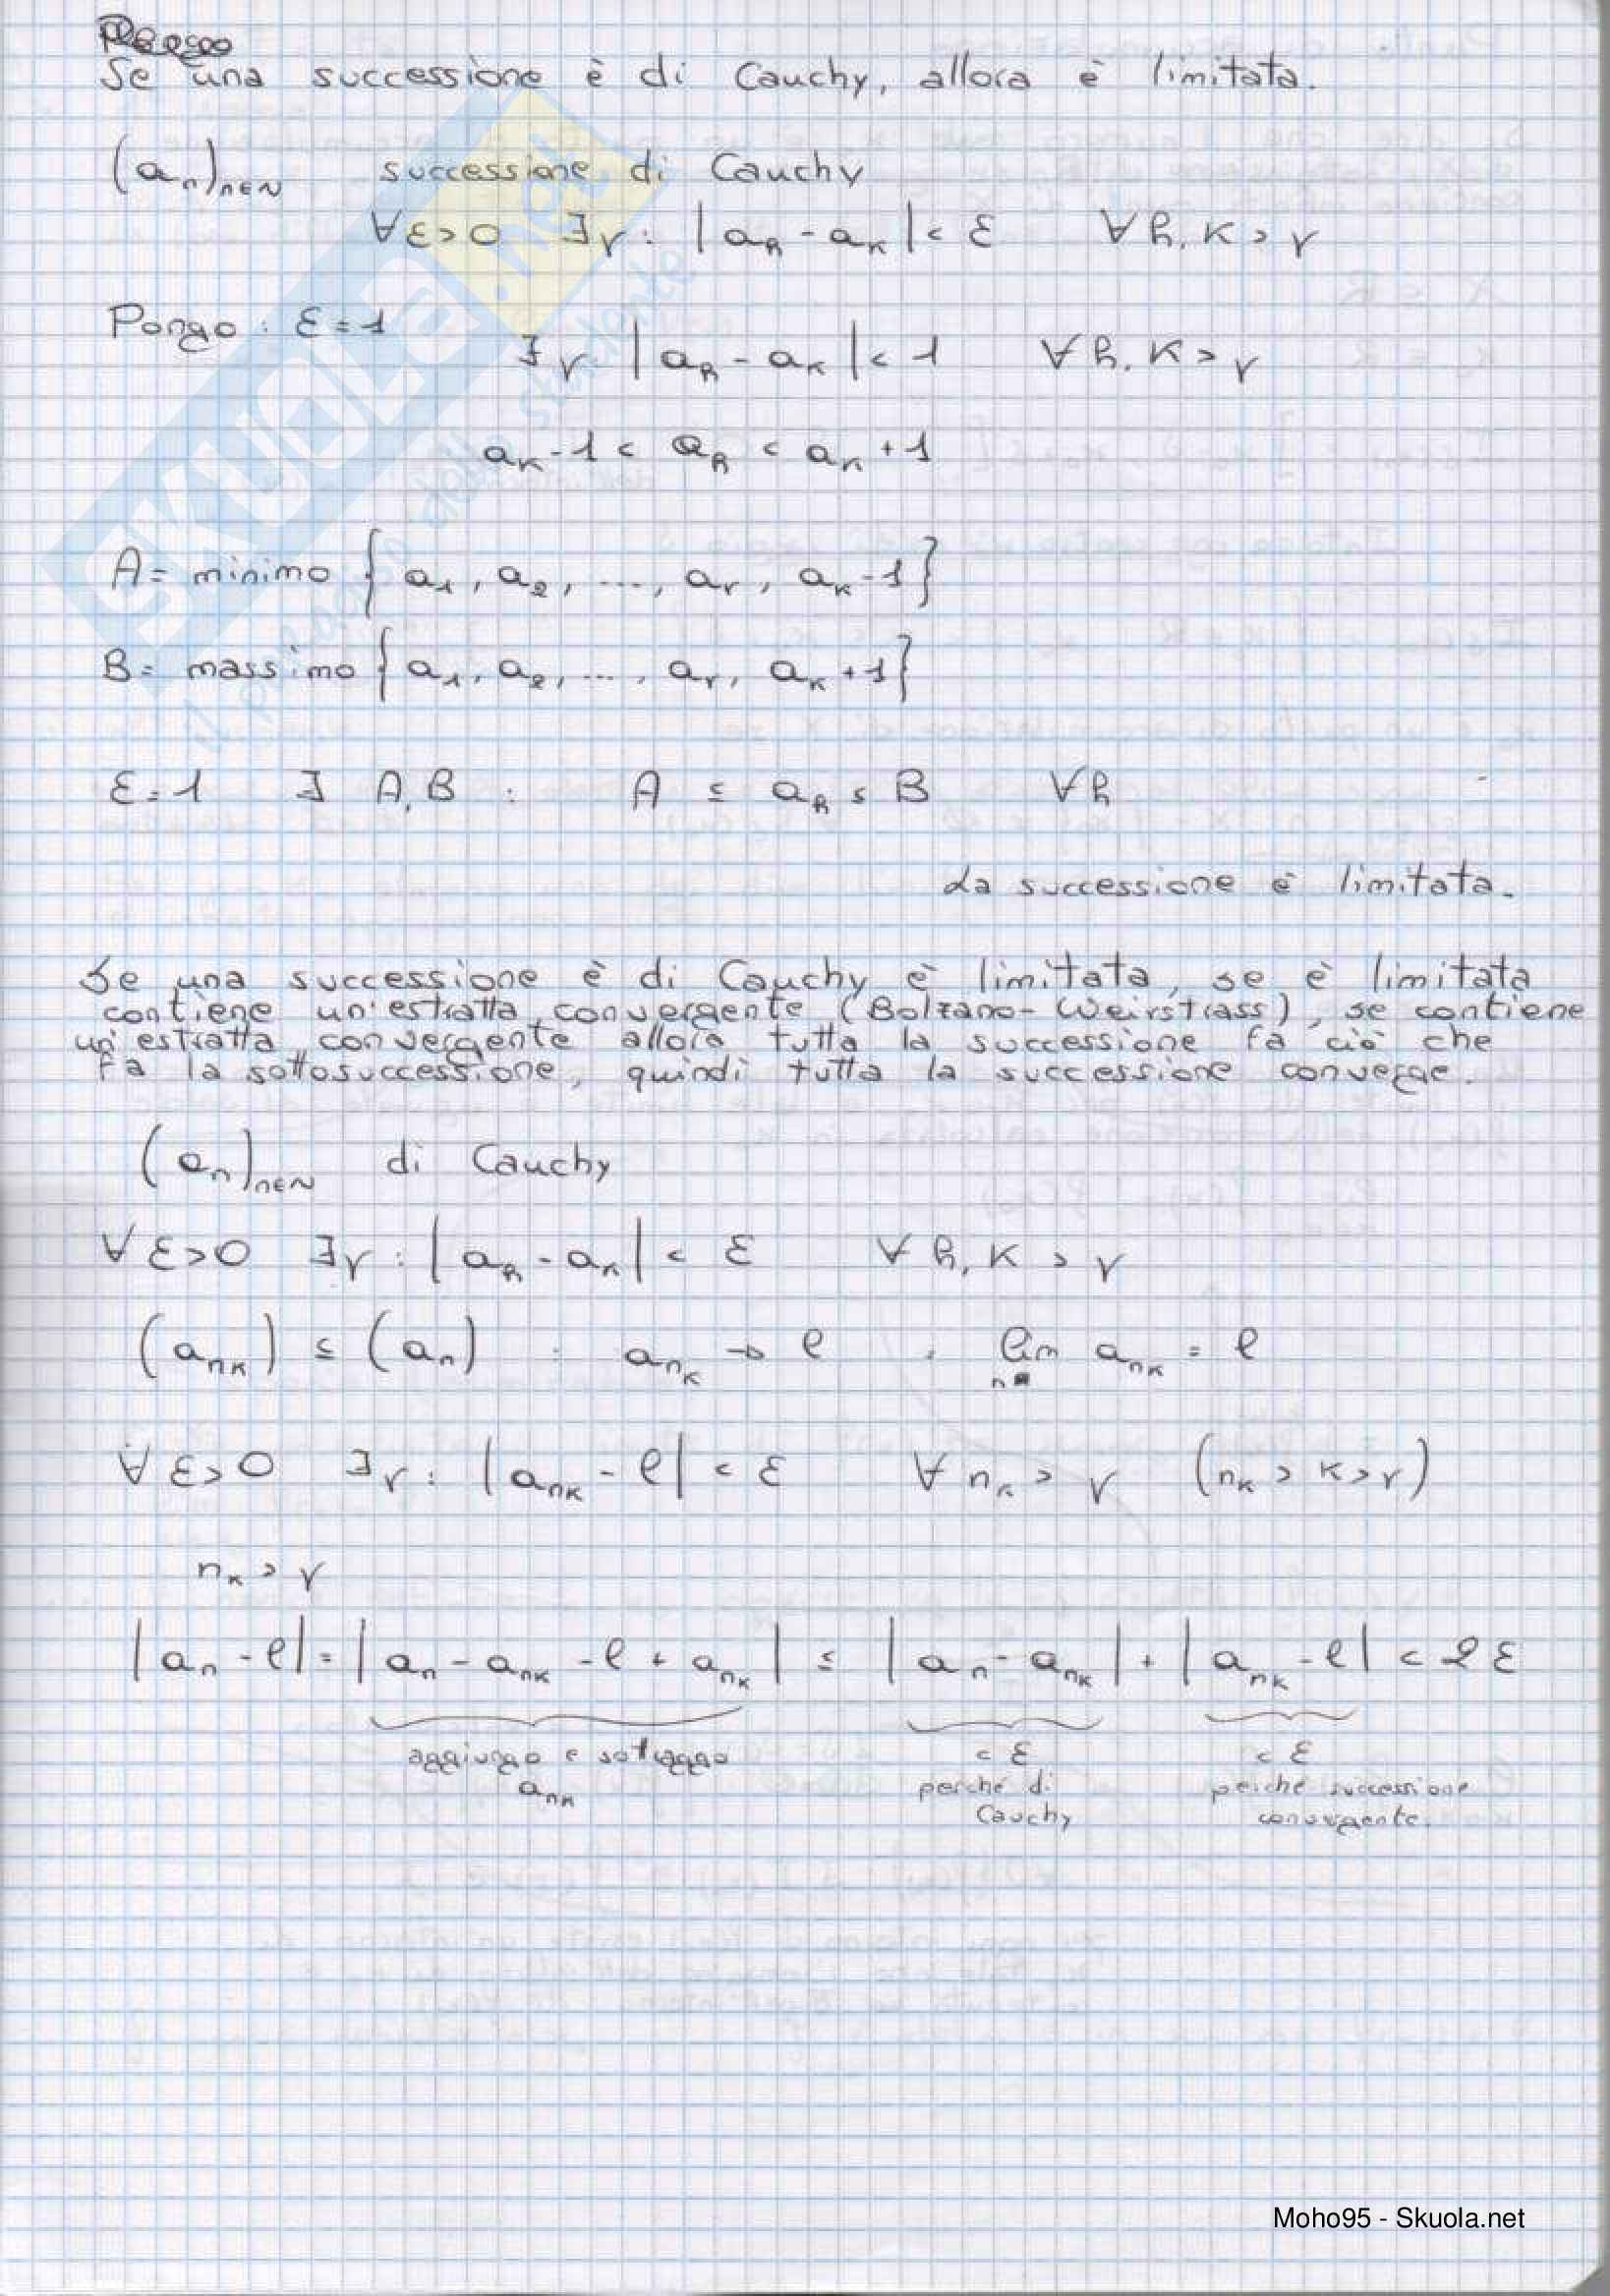 Se una successione è di Cauchy, allora è limitata.
(aₙ)ₙ∈N successione di Cauchy
∀ε>0 ∃ν : |aₕ - aₖ| < ε ∀h, k > ν
Pongo : ε = 1
∃ν |aₕ - aₖ| < 1 ∀h, k > ν
aₖ - 1 < aₕ < aₖ + 1
A = minimo {a₁, a₂, ..., aᵥ, aₖ - 1}
B = massimo {a₁, a₂, ..., aᵥ, aₖ + 1}
ε = 1 ∃ A, B : A ≤ aₕ ≤ B ∀h
La successione è limitata.
Se una successione è di Cauchy è limitata, se è limitata
contiene un'estratta convergente (Bolzano-Weirstrass), se contiene
un'estratta convergente allora tutta la successione fa ciò che
fa la sottosuccessione, quindi tutta la successione converge.
(aₙ)ₙ∈N di Cauchy
∀ε>0 ∃ν : |aₕ - aₖ| < ε ∀h, k > ν
(a_nk) ≤ (aₙ) : a_nk → l , lim a_nk = l
n
∀ε>0 ∃ν : |a_nk - l| < ε ∀nₖ > ν (nₖ > k > ν)
nₖ > ν
|aₙ - l| = |aₙ - a_nk - l + a_nk| ≤ |aₙ - a_nk| + |a_nk - l| < 2ε
aggiungo e sottraggo < ε < ε
a_nk perché di perché successione
Cauchy convergente.
Moho95 - Skuola.net
SKUOLA.net
il paradiso dello studente